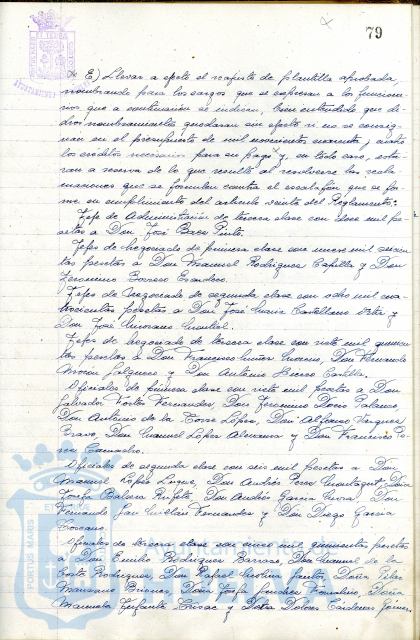 79
E) Llevar a efecto el reajuste de plantilla aprobada,
nombrando para los cargos que se expresan a los funciona-
rios que a continuación se indican, bien entendido que di-
chos nombramientos quedaran sin efecto si no se consig-
nan en el presupuesto de mil novecientos cuarenta y cuatro
los créditos necesarios para su pago y, en todo caso, esta-
ran a reserva de lo que resulte al resolverse las recla-
maciones que se formulen contra el escalafón que se for-
me en cumplimiento del artículo veinte del Reglamento:
Jefe de Administración de tercera clase con doce mil pe-
setas a Don José Baca Pinto.
Jefes de Negociado de primera clase con nueve mil seiscien-
tas pesetas a Don Manuel Rodríguez Capilla y Don
Jeronimo Borrero
Jefes de negociado de segunda clase con ocho mil cua-
trocientas pesetas a Don José María Castellano y
Don José
Jefes de negociado de tercera clase con siete mil quinien-
tas pesetas a Don Francisco Muñoz Moreno, Don Fernando
Moron y Don Antonio
Oficiales de primera clase con siete mil pesetas a Don
Salvador Cortes Fernandez, Don Jeronimo Palanco,
Don Antonio de la Torre López, Don Alfonso Vazquez
Bravo, Don Manuel López y Don Francisco
Camacho.
Oficiales de segunda clase con seis mil pesetas a Don
Manuel López Luque, Don Andrés Perez Doña
Josefa Don Andrés Garcia Don
Fernando Fernandez y Don Diego Garcia
Toscano.
Oficiales de tercera clase con cinco mil quinientas pesetas
a Don Emilio Rodriguez Barroso, Don Manuel de la
Rodriguez, Don Rafael Molina Santos, Doña Pilar
Manzano Doña Josefa Gonzalez Doña
Manuela Infante y Doña Dolores Cárdenas Gomez
Ayuntamiento de
HUELVA
PORTUS MARIS